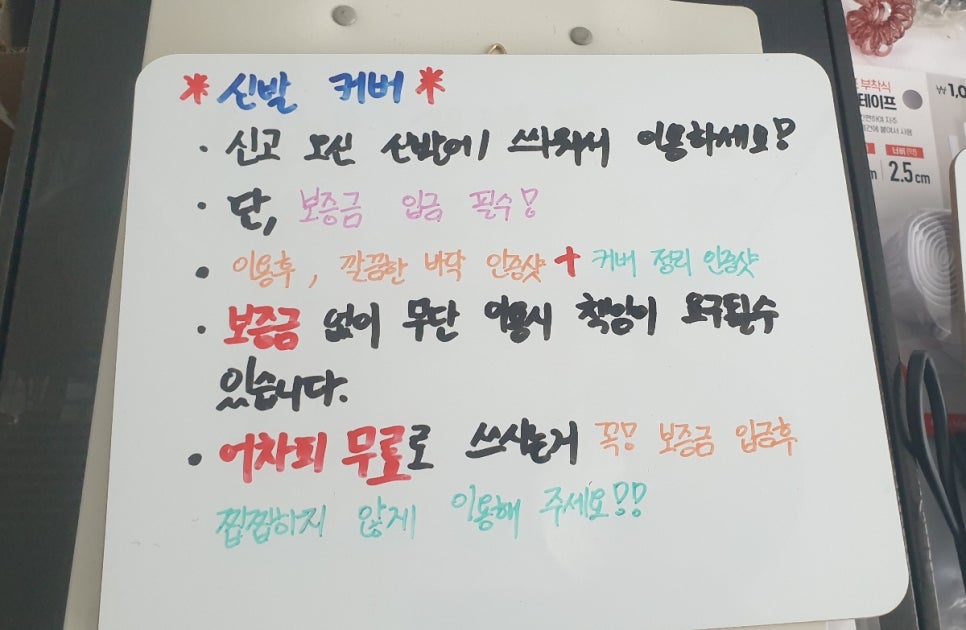 *신발 커버*
· 신고 오신 신발에 씌워서 이용하세요!
· 단, 보증금 입금 필수!
· 이용후, 깔끔한 바닥 인증샷 + 커버 정리 인증샷
· 보증금 없이 무단 이용시 책임이 요구될수
있습니다.
· 어차피 무료로 쓰시는거 꼭! 보증금 입금후
찝찝하지 않게 이용해 주세요!!
부착식
테이프
₩1,0
너비
2.5cm